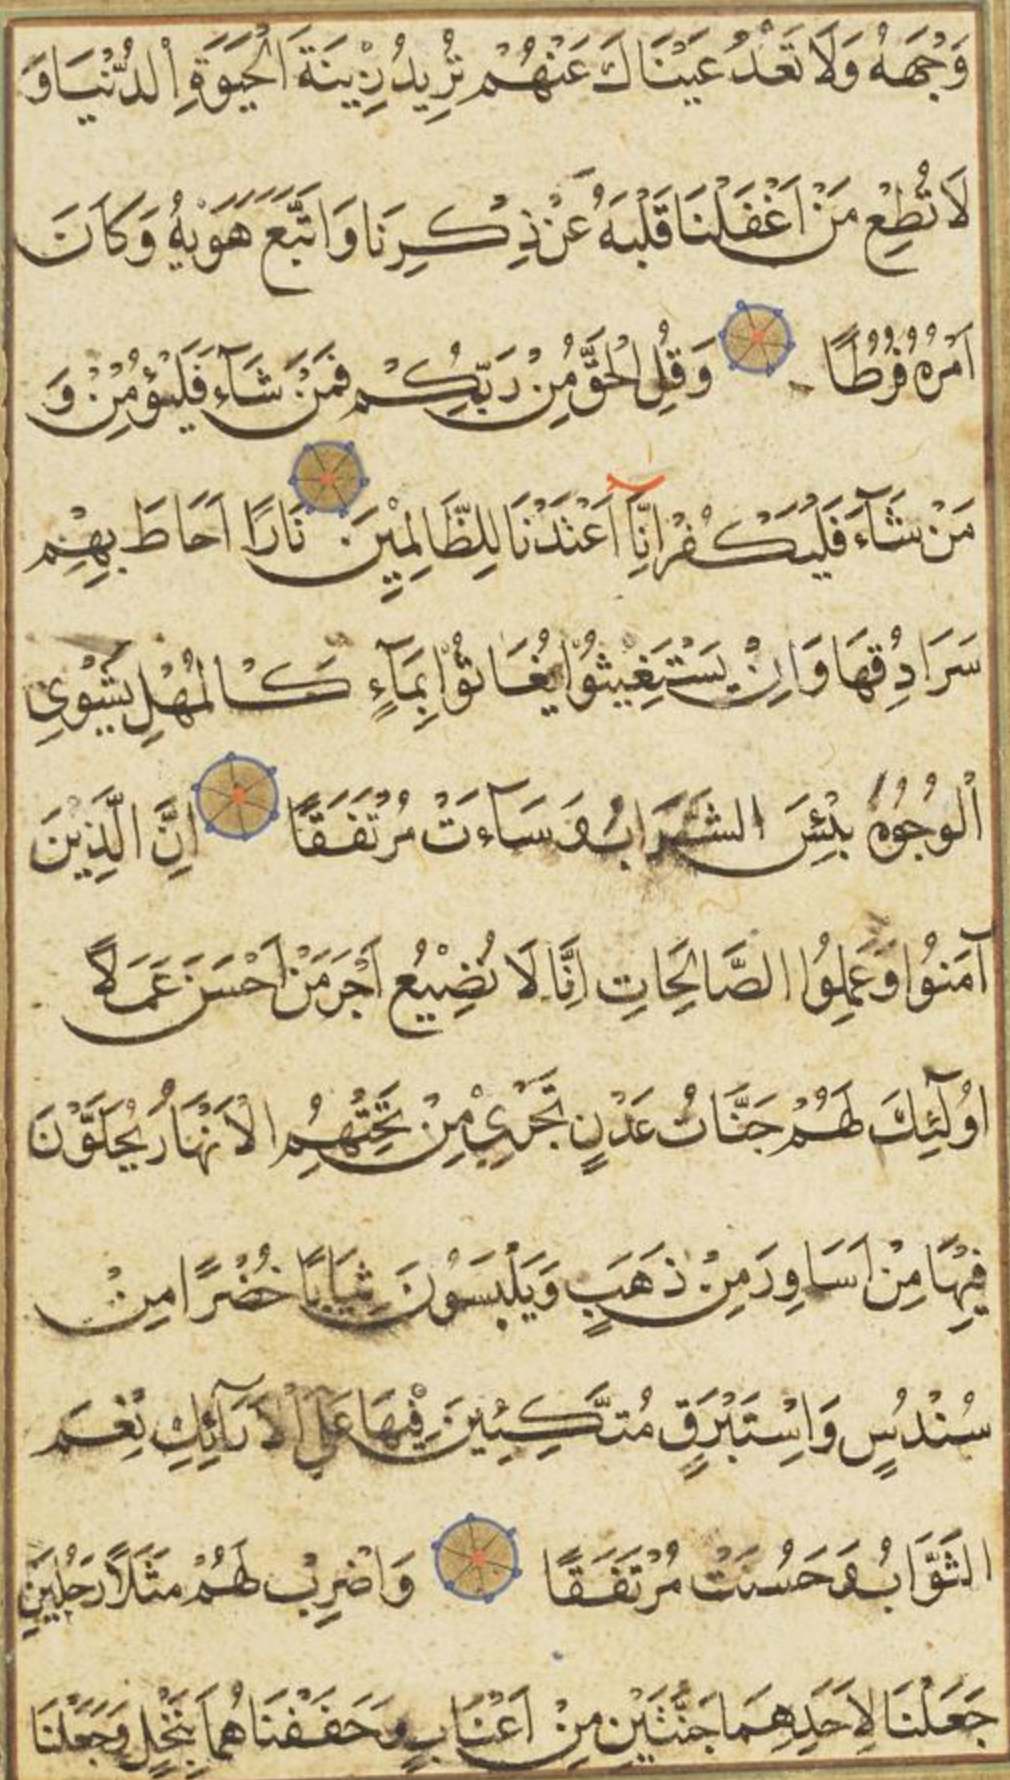 وَجْهَهُ وَلَا تَعْدُ عَيْنَاكَ عَنْهُمْ تُرِيدُ زِيْنَةَ الْحَيٰوةِ الدُّنْيَا وَ
لَا تُطِعْ مَنْ اَغْفَلْنَا قَلْبَهُ عَنْ ذِكْرِنَا وَاتَّبَعَ هَوٰيهُ وَكَانَ
اَمْرُهُ فُرُطًا وَقُلِ الْحَقُّ مِنْ رَبِّكُمْ فَمَنْ شَآءَ فَلْيُؤْمِنْ وَ
مَنْ شَآءَ فَلْيَكْفُرْ اِنَّآ اَعْتَدْنَا لِلظَّالِمِيْنَ نَارًا اَحَاطَ بِهِمْ
سَرَادِقُهَا وَاِنْ يَسْتَغِيثُوْا يُغَاثُوْا بِمَآءٍ كَالْمُهْلِ يَشْوِي
الْوُجُوْهَ بِئْسَ الشَّرَابُ وَسَآءَتْ مُرْتَفَقًا اِنَّ الَّذِيْنَ
آمَنُوْا وَعَمِلُوا الصَّالِحَاتِ اِنَّا لَا نُضِيْعُ اَجْرَ مَنْ اَحْسَنَ عَمَلًا
اُولٰٓئِكَ لَهُمْ جَنَّاتُ عَدْنٍ تَجْرِيْ مِنْ تَحْتِهِمُ الْاَنْهَارُ يُحَلَّوْنَ
فِيْهَا مِنْ اَسَاوِرَ مِنْ ذَهَبٍ وَيَلْبَسُوْنَ ثِيَابًا خُضْرًا مِنْ
سُنْدُسٍ وَاِسْتَبْرَقٍ مُتَّكِئِيْنَ فِيْهَا عَلَى الْاَرَآئِكِ نِعْمَ
الثَّوَابُ وَحَسُنَتْ مُرْتَفَقًا وَاضْرِبْ لَهُمْ مَثَلًا رَجُلَيْنِ
جَعَلْنَا لِاَحَدِهِمَا جَنَّتَيْنِ مِنْ اَعْنَابٍ وَحَفَفْنَاهُمَا بِنَخْلٍ وَجَعَلْنَا